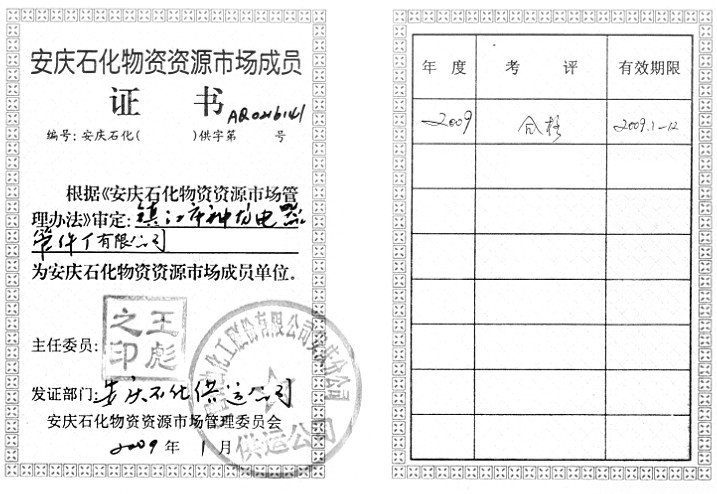 安庆石化物资资源市场成员
证 书
AQ0216141
编号:安庆石化( )供字第 号
根据《安庆石化物资资源市场管
理办法》审定:镇江市神力电器
管件厂有限公司
为安庆石化物资资源市场成员单位。
主任委员:
王彪之印
发证部门:安庆石化供运公司
安庆石化物资资源市场管理委员会
2009 年 1 月
化工股份有限公司安庆分公司
供运公司
年 度 考 评 有效期限
2009 合格 2009.1-12